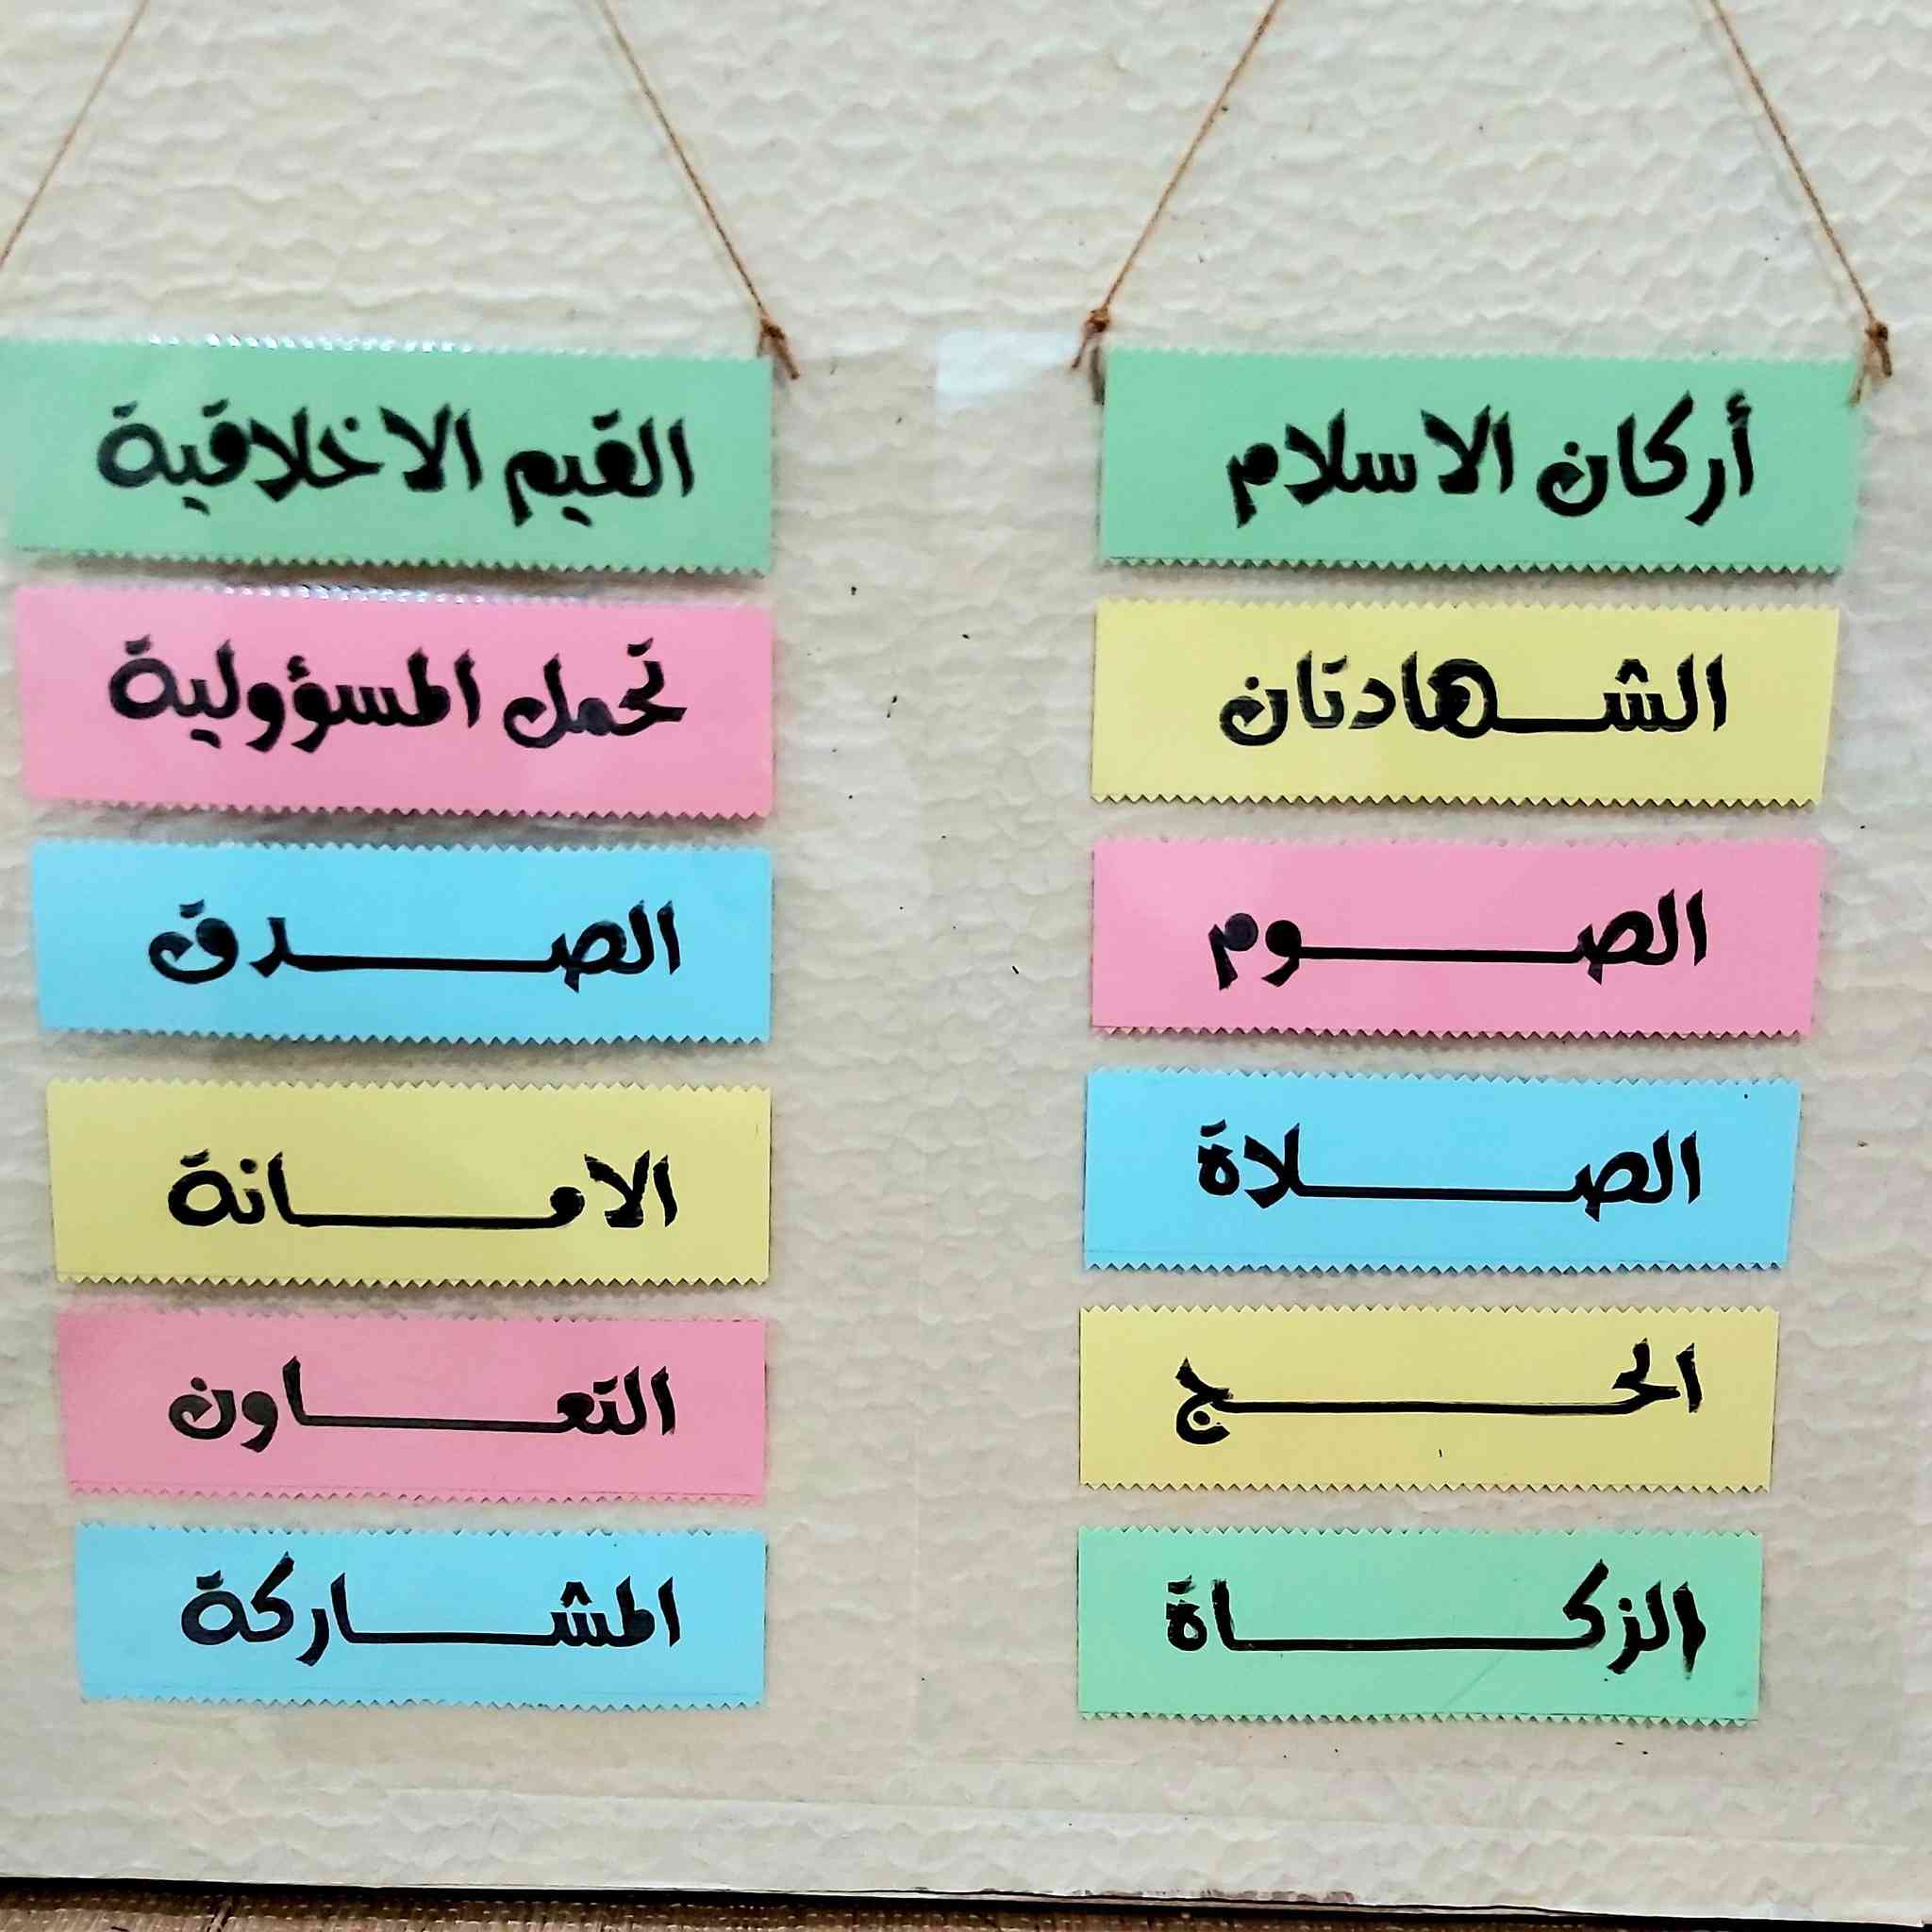 أركان الاسلام
الشهادتان
الصوم
الصلاة
الحج
الزكاة
القيم الاخلاقية
تحمل المسؤولية
الصدق
الامانة
التعاون
المشاركة